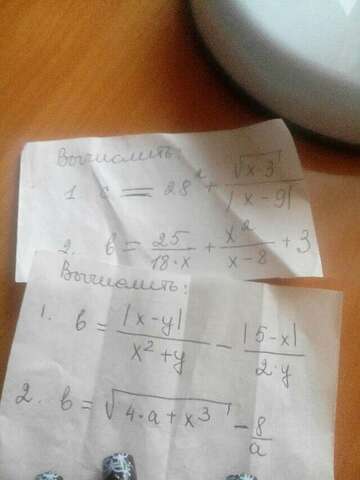 Вычислить:
1. c = 28² + √(x-3) / |x-9|
2. b = 25 / (18·x) + x² / (x-8) + 3
Вычислить:
1. b = |x-y| / (x²+y) - |5-x| / (2·y)
2. b = √(4·a+x³) - 8/a